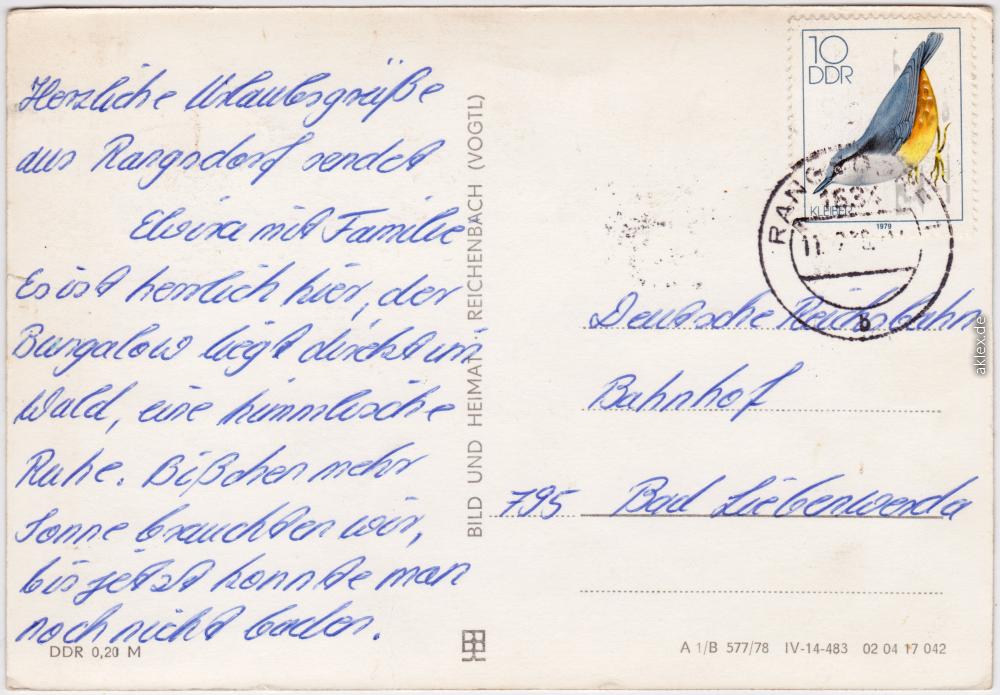 Herzliche Urlaubsgrüße
aus Rangsdorf sendet
Elvira mit Familie
Es ist herrlich hier, der
Bungalow liegt direkt im
Wald, eine himmlische
Ruhe. Bißchen mehr
Sonne brauchten wir,
bis jetzt konnte man
noch nicht baden.
DDR 0,20 M
BILD UND HEIMAT REICHENBACH (VOGTL)
10
DDR
KLEIBER
1979
RANGSDORF
b
Deutsche Reichsbahn
Bahnhof
795 Bad Liebenwerda
A 1/B 577/78 IV-14-483 02 04 17 042
aklex.de